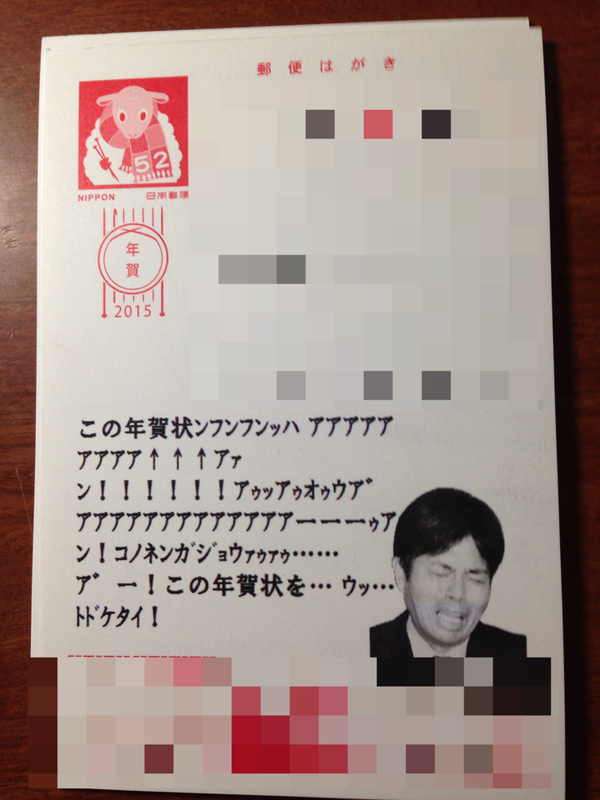 郵便はがき
52
NIPPON 日本郵便
年賀
2015
この年賀状ﾝﾌﾝﾌﾝｯﾊ ｱｱｱｱｱ
ｱｱｱｱ↑↑↑ｱｧ
ﾝ！！！！！！ｱｩｯｱｩｵｩｳｱﾞ
ｱｱｱｱｱｱｱｱｱｱｱｱｱーーーｩｱ
ﾝ！ｺﾉﾈﾝｶﾞｼﾞｮｳｧｩｧｩ……
ｱﾞ ー！この年賀状を… ｳｯ…
ﾄﾄﾞｹﾀｲ！